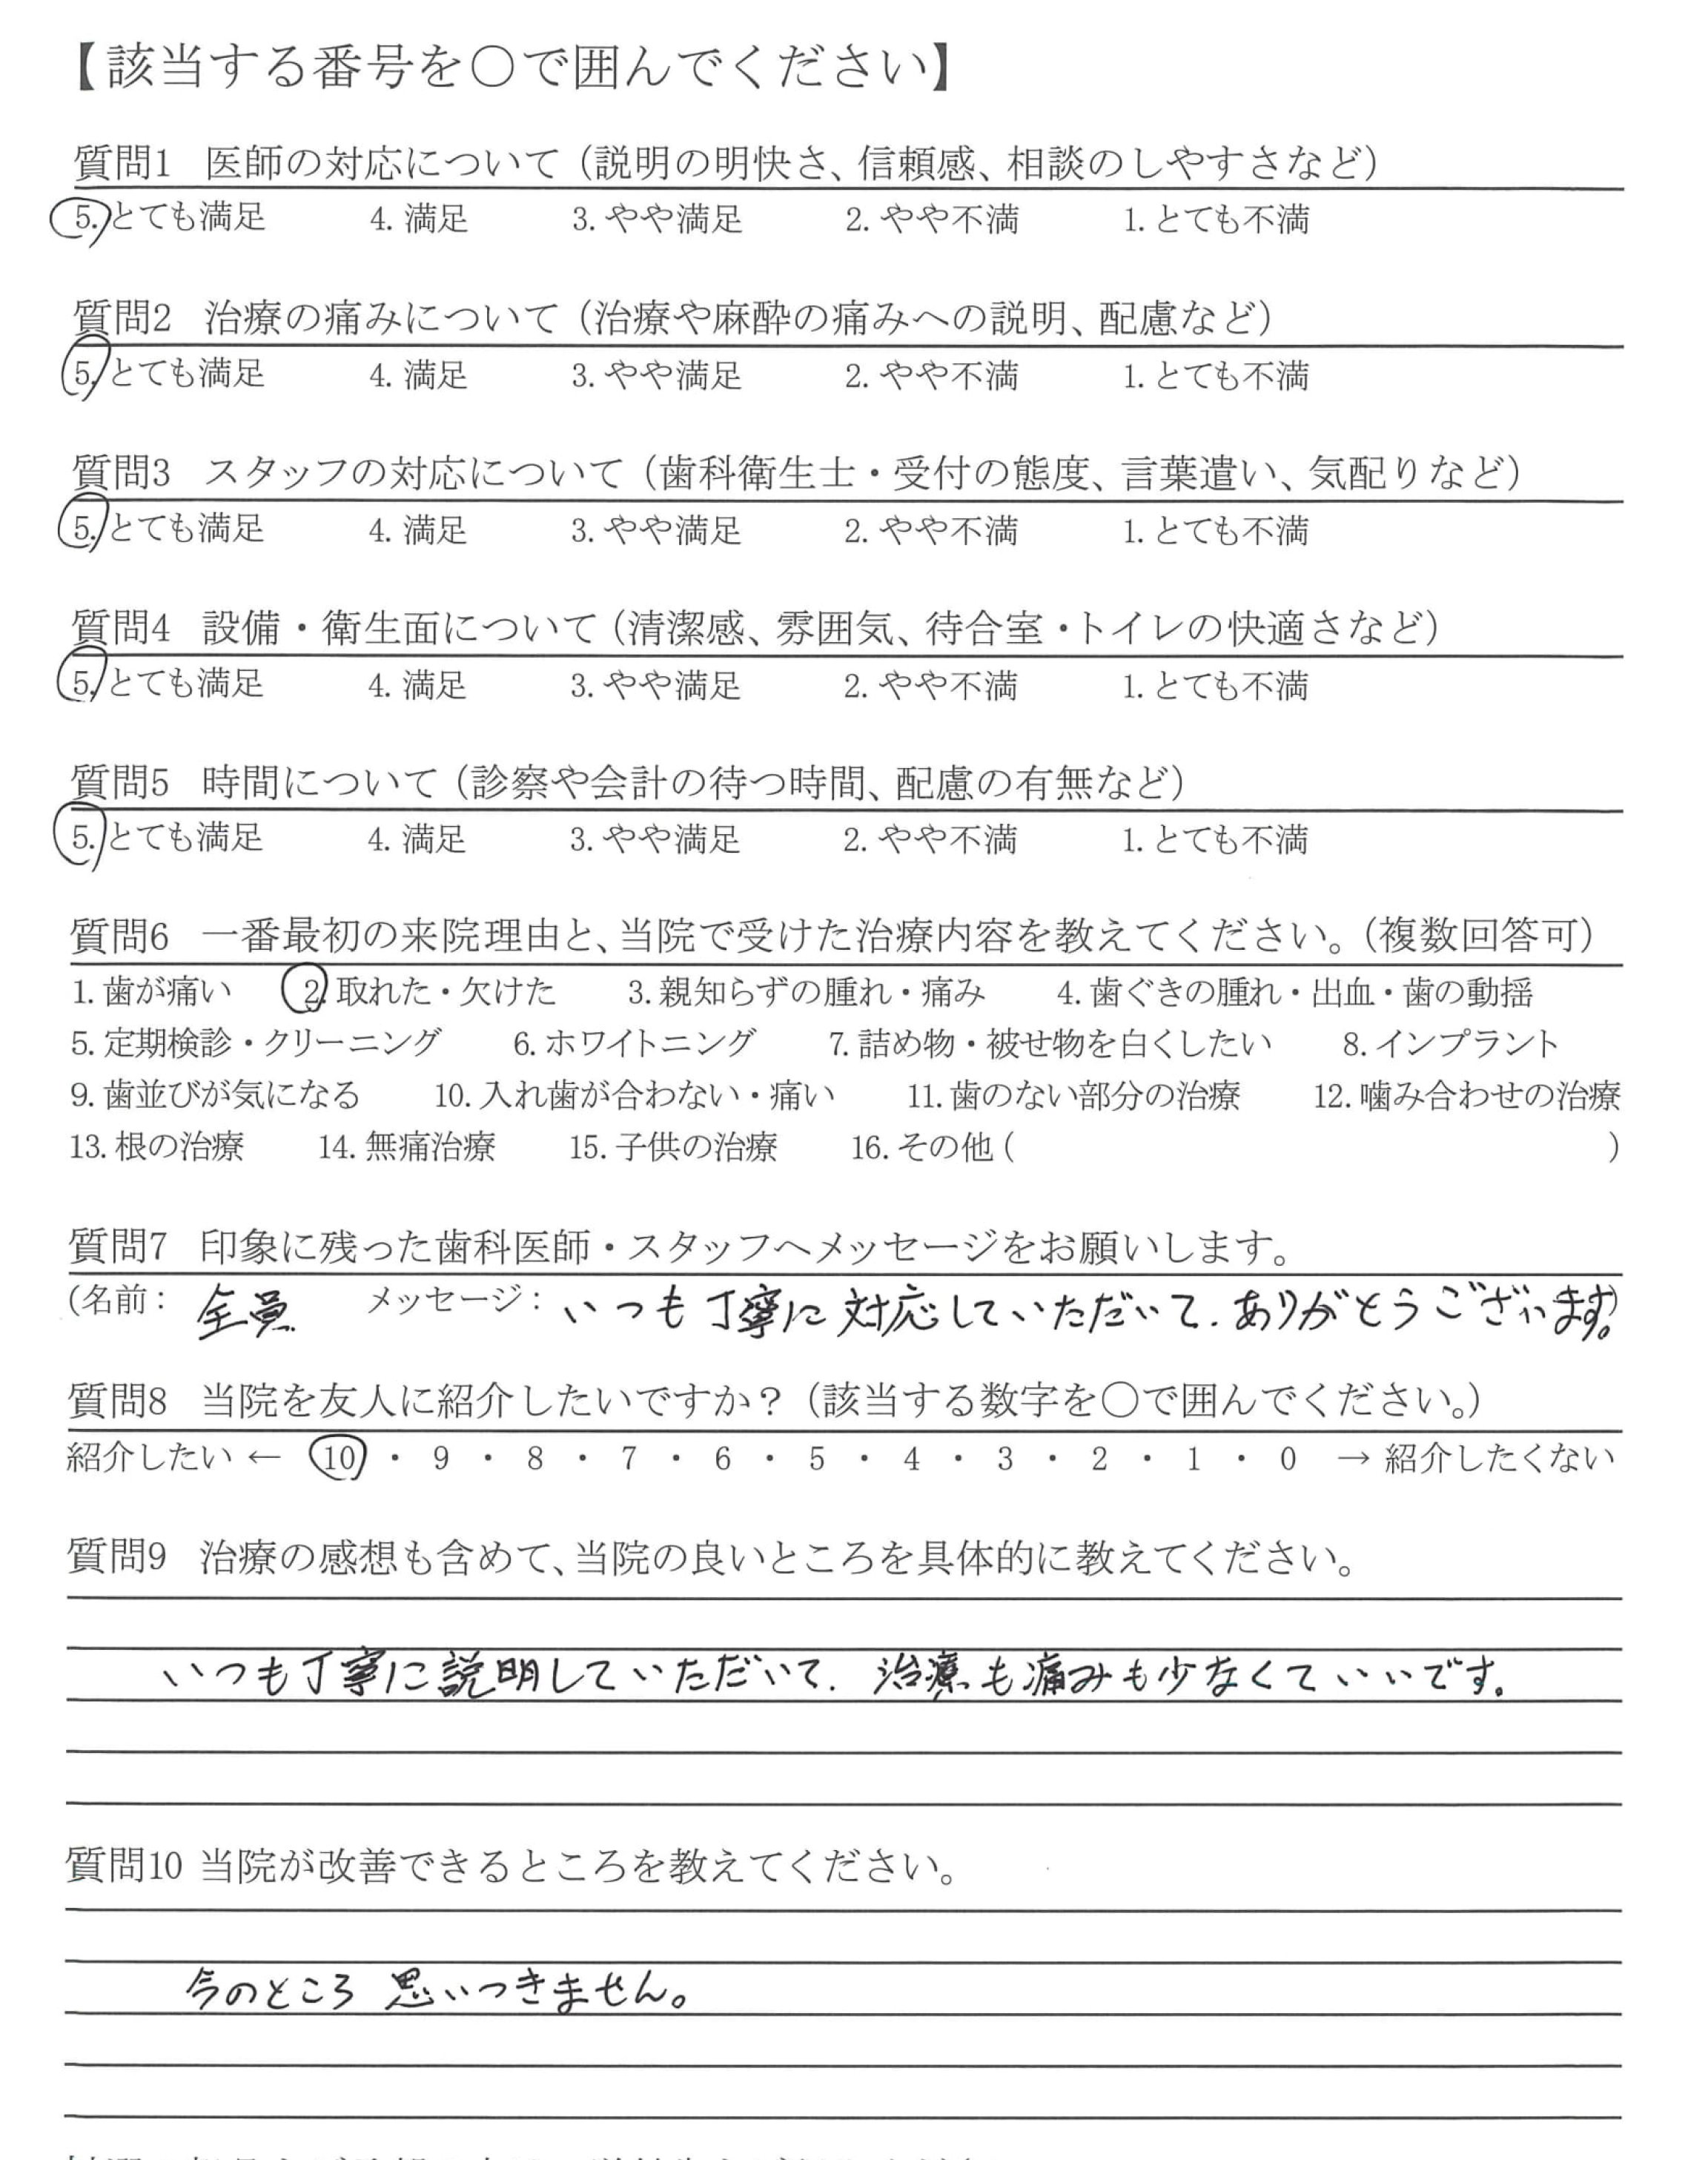 【該当する番号を〇で囲んでください】
質問1 医師の対応について（説明の明快さ、信頼感、相談のしやすさなど）
5. とても満足 4. 満足 3. やや満足 2. やや不満 1. とても不満
質問2 治療の痛みについて（治療や麻酔の痛みへの説明、配慮など）
5. とても満足 4. 満足 3. やや満足 2. やや不満 1. とても不満
質問3 スタッフの対応について（歯科衛生士・受付の態度、言葉遣い、気配りなど）
5. とても満足 4. 満足 3. やや満足 2. やや不満 1. とても不満
質問4 設備・衛生面について（清潔感、雰囲気、待合室・トイレの快適さなど）
5. とても満足 4. 満足 3. やや満足 2. やや不満 1. とても不満
質問5 時間について（診察や会計の待つ時間、配慮の有無など）
5. とても満足 4. 満足 3. やや満足 2. やや不満 1. とても不満
質問6 一番最初の来院理由と、当院で受けた治療内容を教えてください。（複数回答可）
1. 歯が痛い 2. 取れた・欠けた 3. 親知らずの腫れ・痛み 4. 歯ぐきの腫れ・出血・歯の動揺
5. 定期検診・クリーニング 6. ホワイトニング 7. 詰め物・被せ物を白くしたい 8. インプラント
9. 歯並びが気になる 10. 入れ歯が合わない・痛い 11. 歯のない部分の治療 12. 噛み合わせの治療
13. 根の治療 14. 無痛治療 15. 子供の治療 16. その他（ ）
質問7 印象に残った歯科医師・スタッフへメッセージをお願いします。
（名前： 全員 メッセージ： いつも丁寧に対応していただいて、ありがとうございます。）
質問8 当院を友人に紹介したいですか？（該当する数字を〇で囲んでください。）
紹介したい ← 10 ・ 9 ・ 8 ・ 7 ・ 6 ・ 5 ・ 4 ・ 3 ・ 2 ・ 1 ・ 0 → 紹介したくない
質問9 治療の感想も含めて、当院の良いところを具体的に教えてください。
いつも丁寧に説明していただいて、治療も痛みも少なくていいです。
質問10 当院が改善できるところを教えてください。
今のところ 思いつきません。